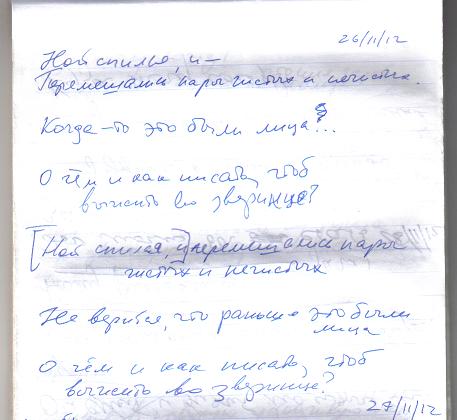 26/11/12
Ной спился, и –
Перемешались пары чистых и нечистых.
Когда-то это были лица?..
О чём и как писать, чтоб
выжить во зверинце?
[Ной спился, и] перемешались пары
чистых и нечистых
Не верится, что раньше это были
лица
О чём и как писать, чтоб
во зверинце?
27/11/12